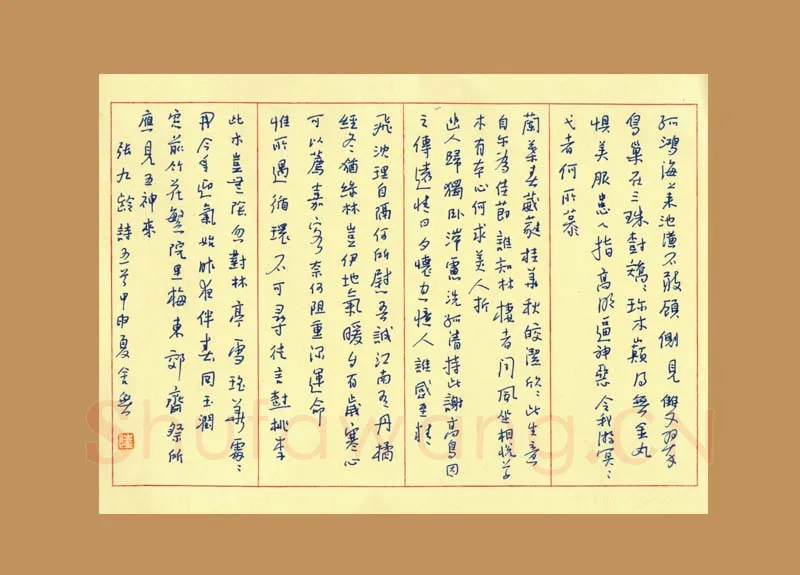 孤鴻海上来池潢不敢顾側見雙翠
鳥巢在三珠樹矯〻珍木巔得無金丸
惧美服患人指高明逼神惡今我游冥〻
弋者何所慕
蘭葉春葳蕤桂華秋皎潔欣〻此生意
自尔为佳節誰知林棲者聞風坐相悦草
木有本心何求美人折
幽人歸獨卧滞慮洗孤清持此謝高鳥因
之傳遠情日夕懷空憶人誰感至精
飛沈理自隔何所慰吾誠江南有丹橘
經冬猶綠林豈伊地氣暖自有歲寒心
可以薦嘉客奈何阻重深運命
惟所遇循環不可尋徒言樹桃李
此木豈無陰忽對林亭雪瑤華處〻
開今年迎氣始昨夜伴春回玉潤
窓前竹花繁院里梅東郊齋祭所
應見五神来
张九龄詩五首甲申夏
Shufawang.CN